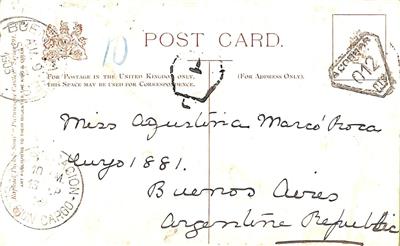 POST CARD.
10
FOR POSTAGE IN THE UNITED KINGDOM ONLY,
THIS SPACE MAY BE USED FOR CORRESPONDENCE.
(FOR ADDRESS ONLY).
012
Miss Agustina Marcó Roca
Cuyo 1881.
Buenos Aires
Argentine Republic
CARGO